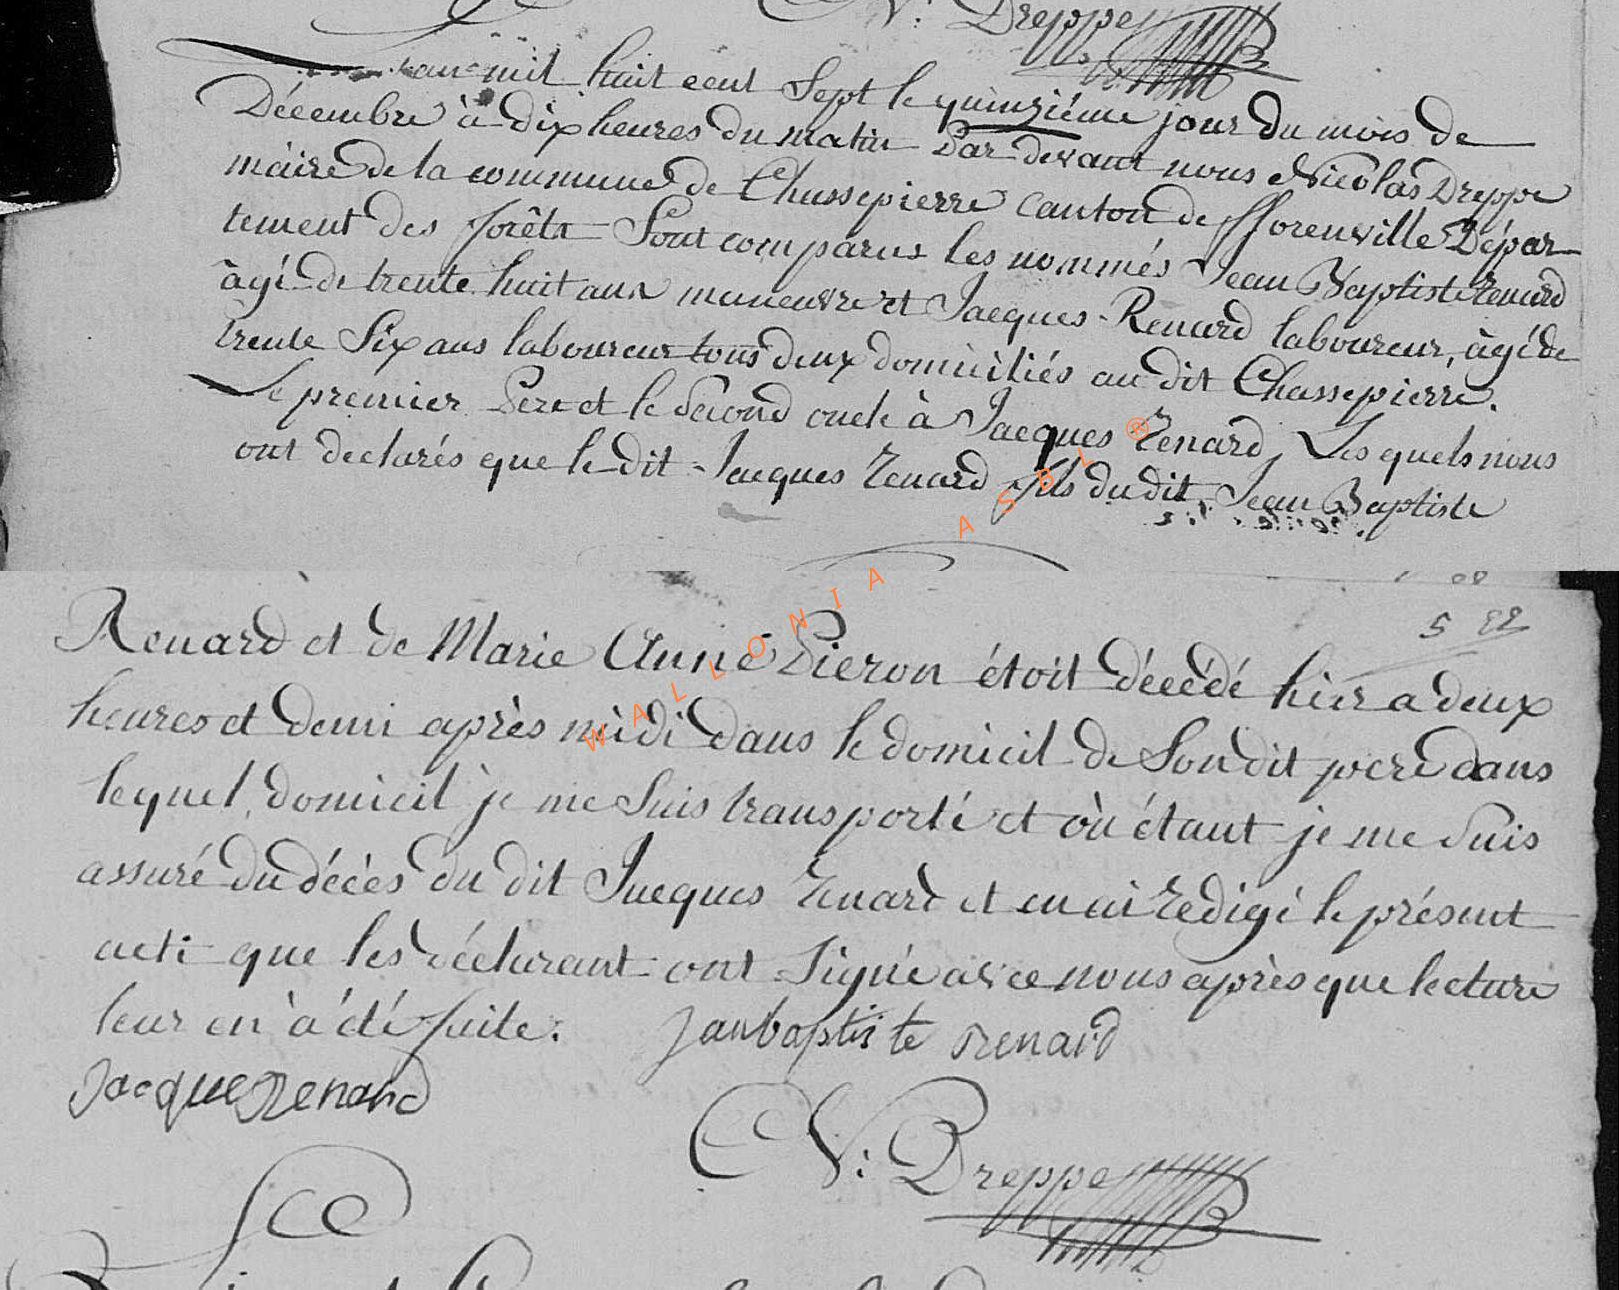 N: Dreppe
L'an mil huit cent Sept le quinziéme jour du mois de
Décembre à dix heures du matin Par devant nous Nicolas Dreppe
maire de la commune de Chassepierre Canton de fflorenville Dépar
tement des forêts Sont comparus les nommés Jean Baptiste Renard
âgé de trente huit ans maneuvre et Jacques Renard laboureur, âgé de
trente Six ans laboureur tous deux domiciliés au dit Chassepierre.
Le premier Pere et le Second oncle à Jacques Renard, Les quels nous
ont declarés que le dit Jacques Renard fils du dit Jean Baptiste
5 22
Renard et de Marie Anne Pieron étoit décédé hier a deux
heures et demi après midi dans le domicil de Son dit pere dans
lequel domicil je me Suis transporté et où étant je me Suis
assuré du décès du dit Jacques Renard et en ai redigé le présent
acte que les déclarant ont Signé avec nous après que lecture
leur en à été faite. Janbaptiste Renard
Jacque Renard
N: Dreppe
WALLONIA ASBL ®